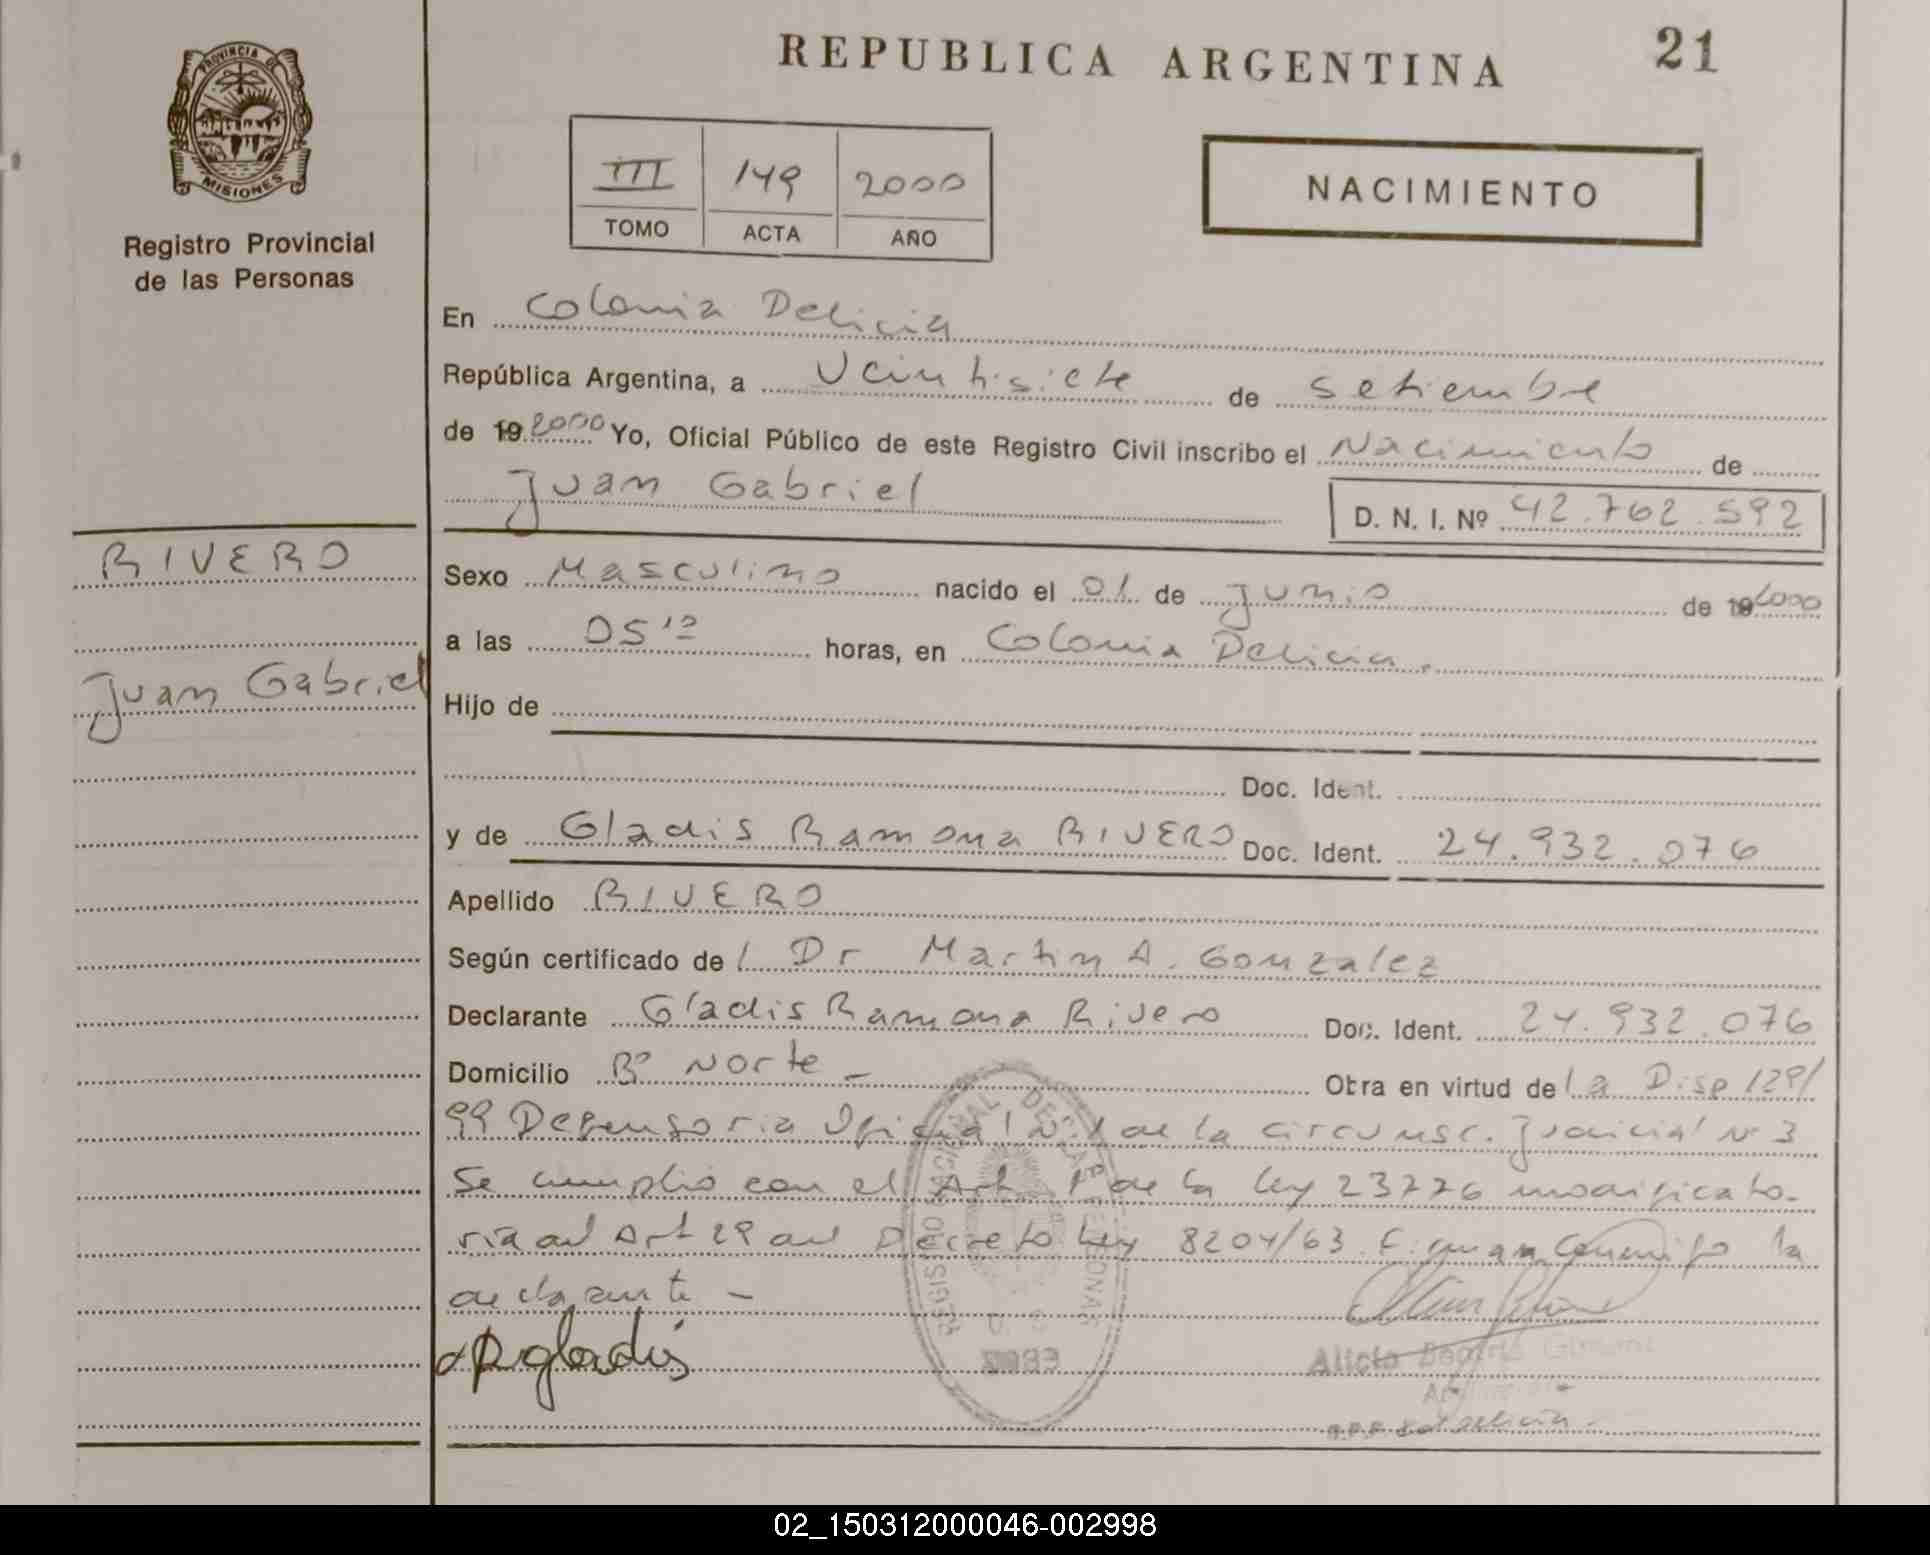 REPUBLICA ARGENTINA
21
PROVINCIA DE
MISIONES
Registro Provincial
de las Personas
III 149 2000
TOMO ACTA AÑO
NACIMIENTO
En Colonia Delicia
República Argentina, a Veintisiete de setiembre
de 19 2000 Yo, Oficial Público de este Registro Civil inscribo el Nacimiento de
Juan Gabriel
D. N. I. Nº 42.762.592
RIVERO
Juan Gabriel
Sexo Masculino nacido el 01 de Junio de 19 2000
a las 05 horas, en Colonia Delicia.
Hijo de
Doc. Ident.
y de Gladis Ramona RIVERO Doc. Ident. 24.932.076
Apellido RIVERO
Según certificado de l Dr Martin A. Gonzalez
Declarante Gladis Ramona Rivero Doc. Ident. 24.932.076
Domicilio Bº Norte - Otra en virtud de la Disp 129/
99 Defensoria Oficial Nº 1 de la circunsc. Judicial Nº 3
Se cumplio con el Art 1º de la ley 23776 modificato-
ria del Art 29 del Decreto Ley 8204/63 Firman Conmigo la
declarante -
Rgladis
Alicia Beatriz
Delicia
02_150312000046-002998